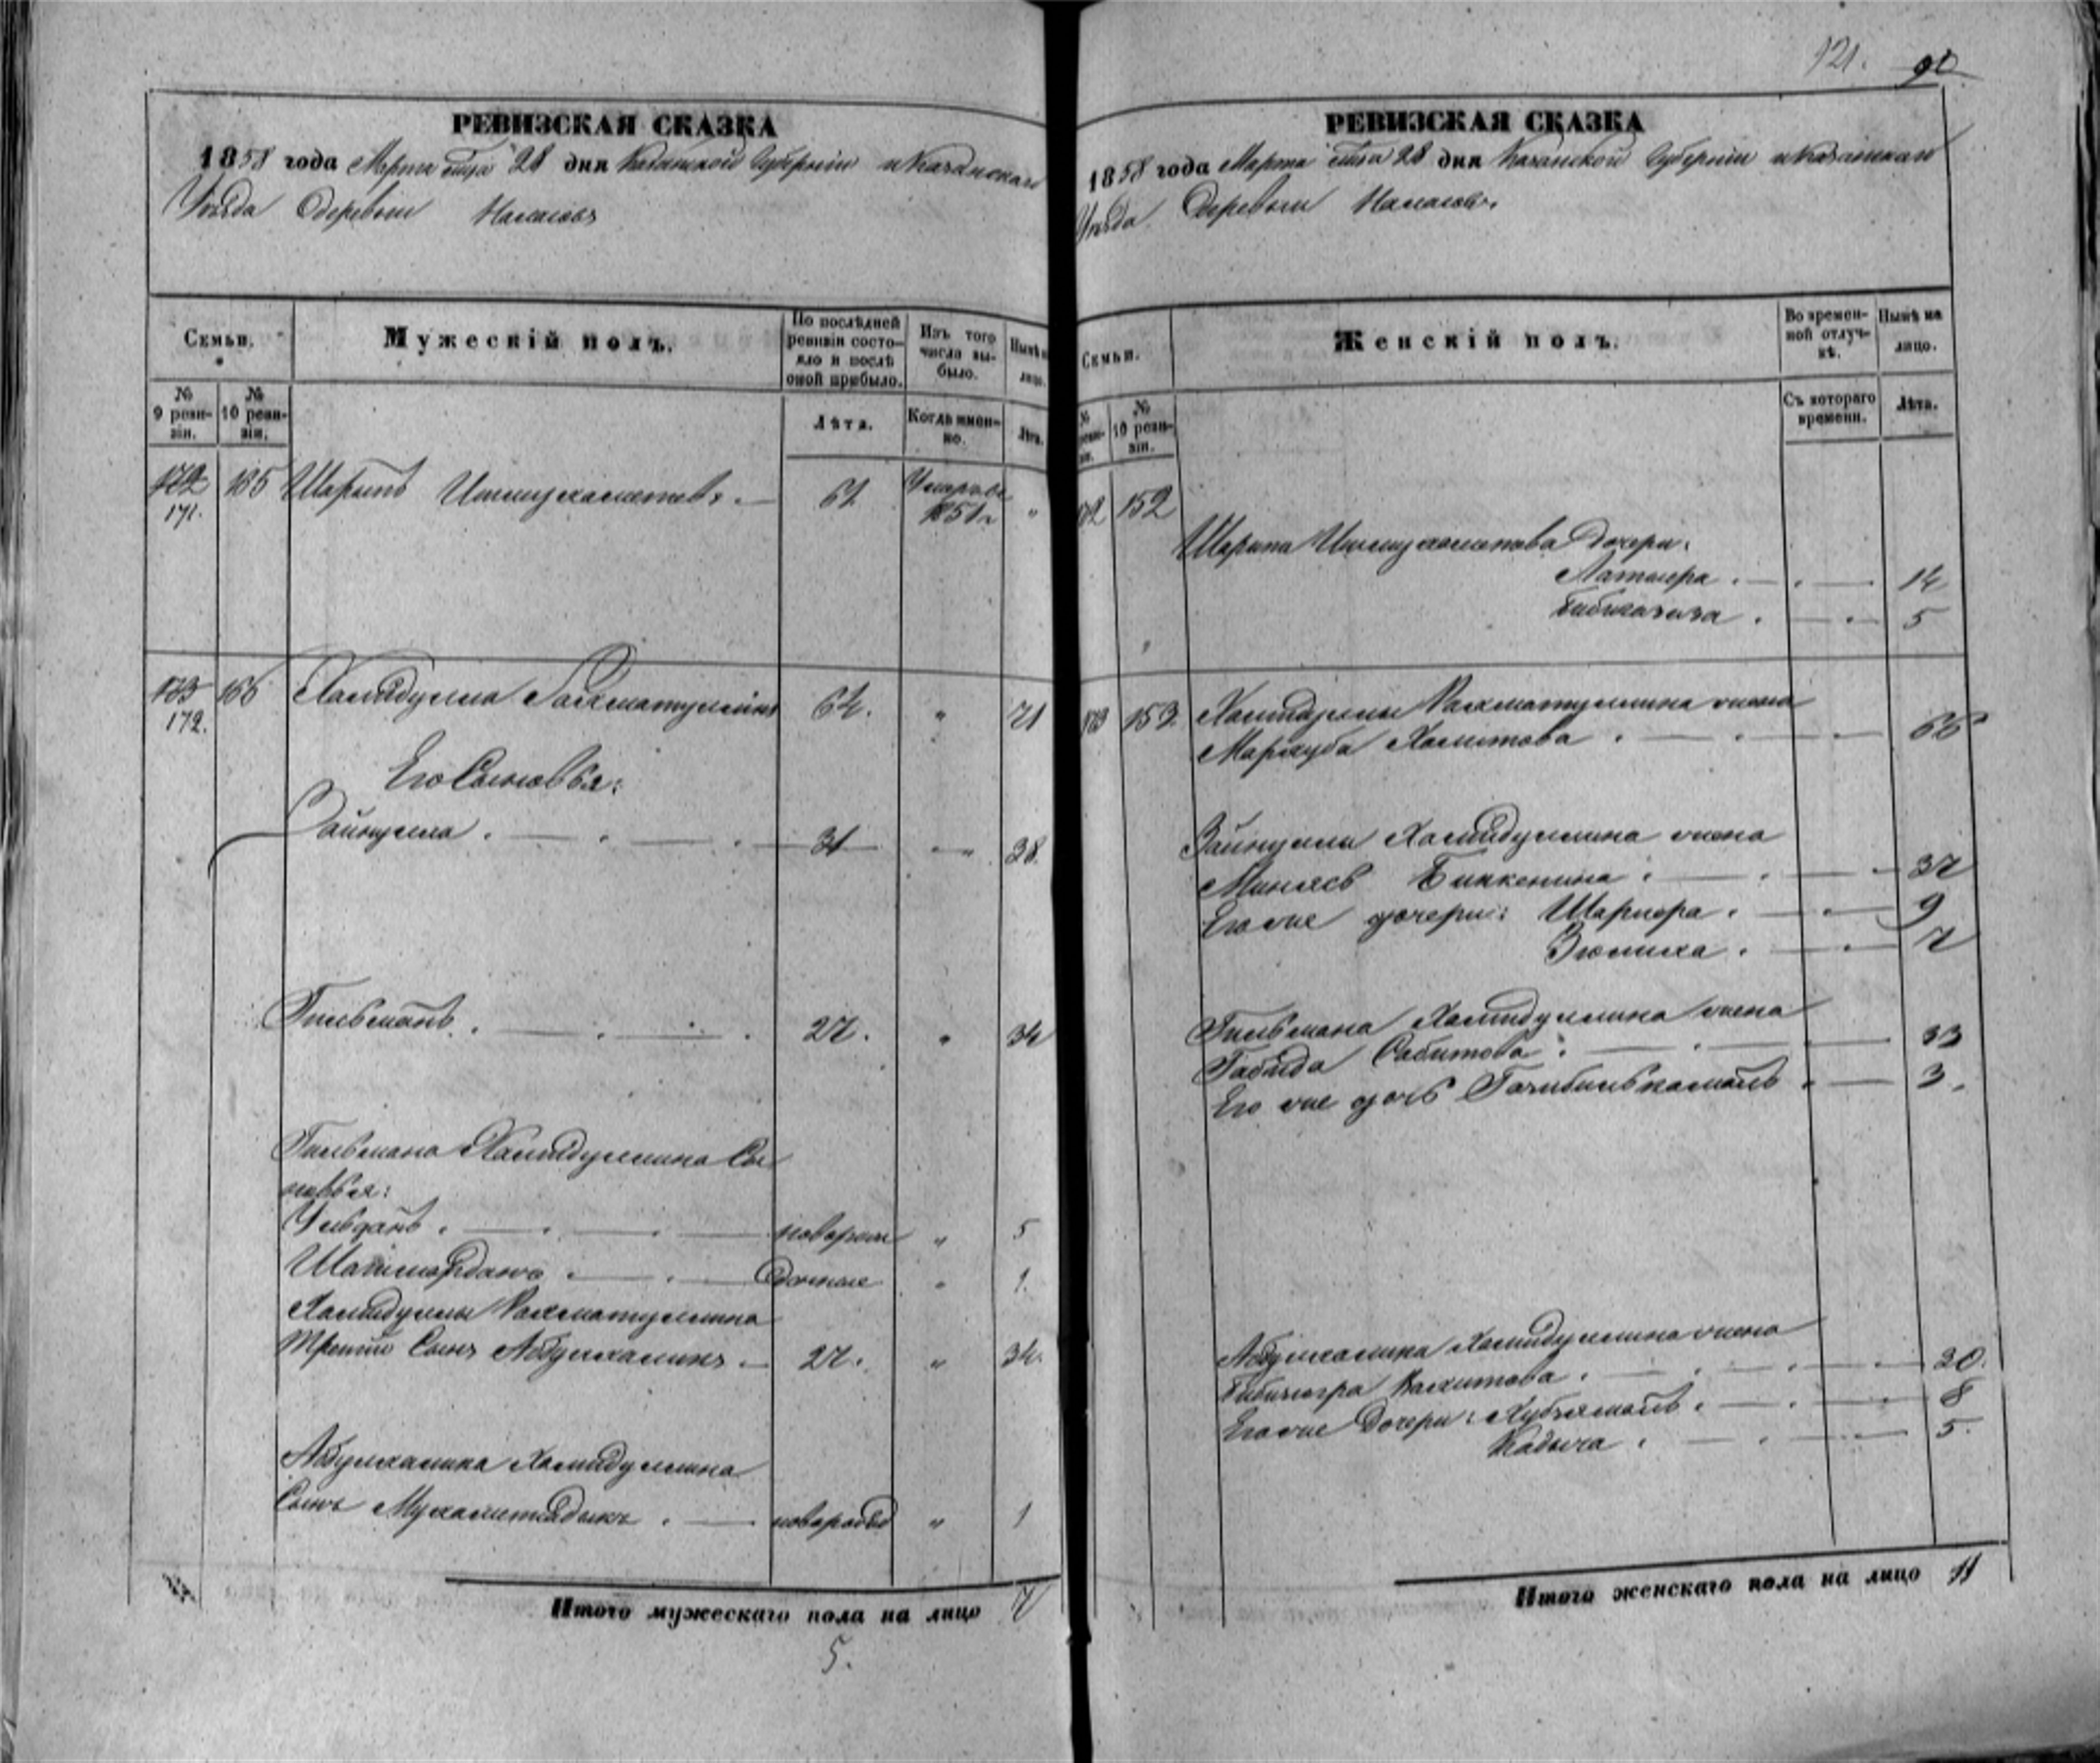 121. 90
РЕВИЗСКАЯ СКАЗКА
1858 года Марта 28 дня Казанской Губернiи и Казанскаго
Уѣзда Деревни
Семьи.
Мужескiй полъ.
По послѣдней ревизiи состояло и послѣ оной прибыло.
Изъ того числа выбыло.
Нынѣ на лицо.
№ 9 ревизiи.
№ 10 ревизiи.
Лѣта.
Когда именно.
Лѣта.
172 185 Шарыпъ Ишмухаметовъ. 61 Умеръ въ
171. 1851 г. "
173 186 Хамидулла Рахматуллинъ 64. " 71
172.
Его Сыновья:
Зайнулла . 31 " 38.
Гильманъ . 27. " 34
Гильмана Хамидуллина Сы
новья:
Ульданъ . новорож " 5
Шагимарданъ . денные " 1.
Хамидуллы Рахматуллина
третiй Сынъ Абдулхаликъ 27. " 34.
Абдулхалика Хамидуллина
Сынъ Мухаметсадыкъ . новорожд " 1
Итого мужескаго пола на лицо 7
5.
РЕВИЗСКАЯ СКАЗКА
1858 года Марта 28 дня Казанской Губернiи и Казанскаго
Уѣзда Деревни
Семьи.
Женскiй полъ.
Во временной отлучкѣ.
Нынѣ на лицо.
№ ревизiи.
№ 10 ревизiи.
Съ котораго времени.
Лѣта.
172 152
Шарыпа Ишмухаметова Дочери:
14
5
173 153. Хамидуллы Рахматуллина жена
Мархуба Хамитова . 66
Зайнуллы Хамидуллина жена
Биккенина . 37
Его же дочери: 9
7
Гильмана Хамидуллина жена
Габида Сабитова . 33
Его же дочь 3.
Абдулхалика Хамидуллина жена
30.
Его же Дочери: 8
Кадыча . 5.
Итого женскаго пола на лицо 11